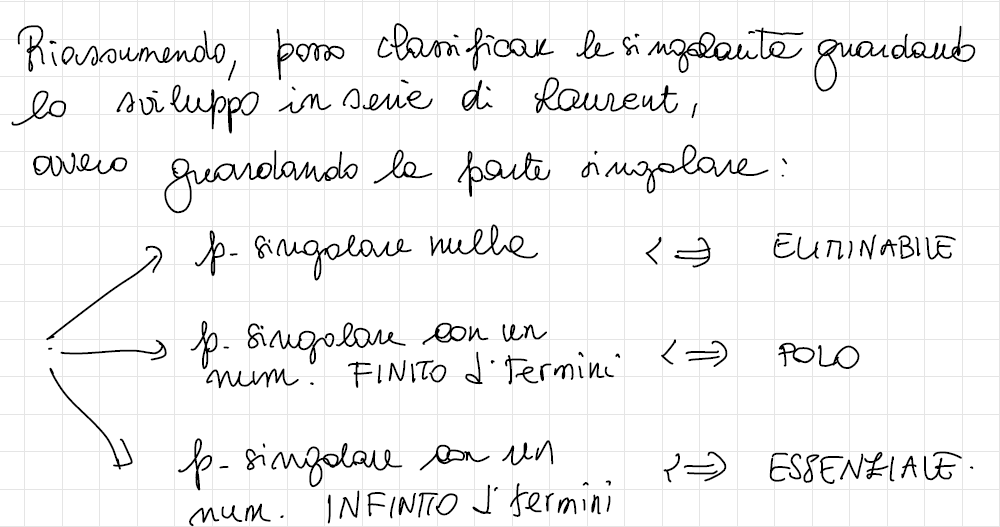 Riassumendo, posso classificare le singolarità guardando
lo sviluppo in serie di Laurent,
ovvero guardando la parte singolare:
p- singolare nulla <=> ELIMINABILE
p- singolare con un
num. FINITO di termini <=> POLO
p- singolare con un
num. INFINITO di termini <=> ESSENZIALE.